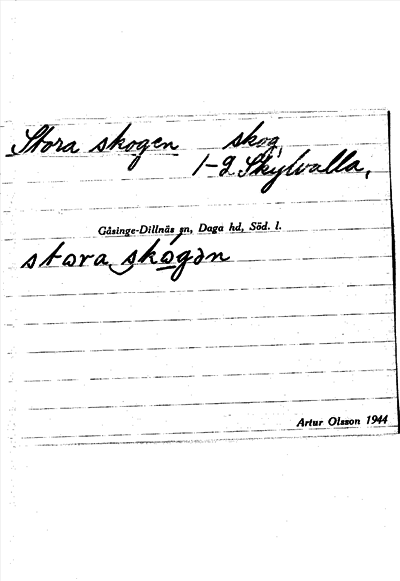 Stora skogen skog,
1-2 Skylvalla,
Gåsinge-Dillnäs sn, Daga hd, Söd. l.
stora skogən
Artur Olsson 1944